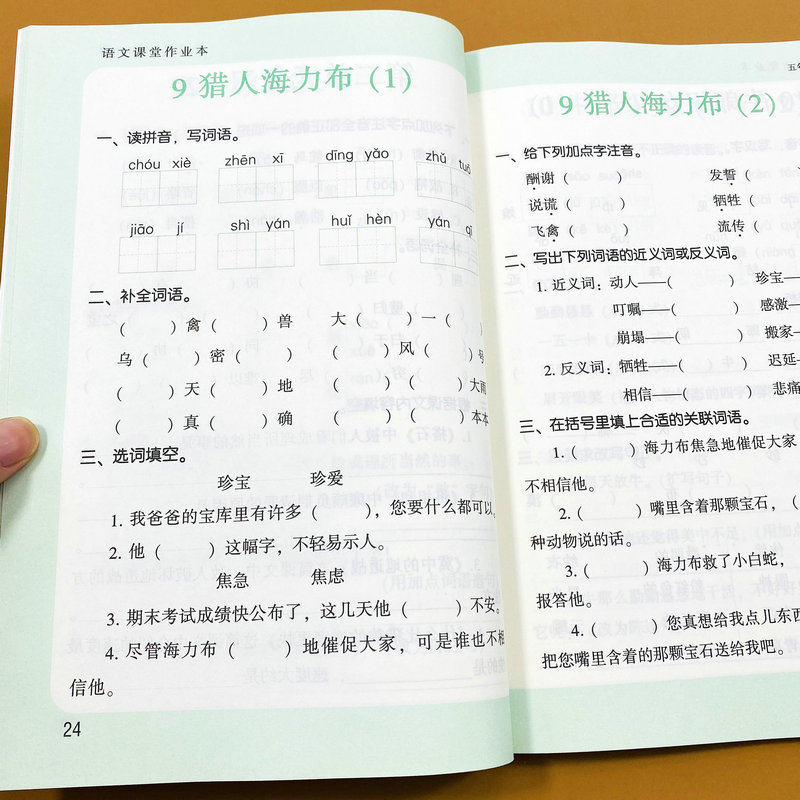 语文课堂作业本
9 猎人海力布 (1)
一、读拼音，写词语。
chóu xiè zhēn xī dīng yǎo zhǔ tuō
jiāo jí shì yán huǐ hèn yán
二、补全词语。
( )禽( )兽 大( )一( )
乌( )密( ) ( )风( )号
( )天( )地 ( )( )大雨
( )真( )确 ( )( )本本
三、选词填空。
珍宝 珍爱
1. 我爸爸的宝库里有许多( )，您要什么都可以。
2. 他( )这幅字，不轻易示人。
焦急 焦虑
3. 期末考试成绩快公布了，这几天他( )不安。
4. 尽管海力布( )地催促大家，可是谁也不相
信他。
24
五年
9 猎人海力布 (2)
一、给下列加点字注音。
酬谢( ) 发誓(
说谎( ) 牺牲(
飞禽( ) 流传(
二、写出下列词语的近义词或反义词。
1. 近义词：动人——( ) 珍宝—
叮嘱——( ) 感激—
崩塌——( ) 搬家—
2. 反义词：牺牲——( ) 迟延—
相信——( ) 悲痛
三、在括号里填上合适的关联词语。
1. ( )海力布焦急地催促大家
不相信他。
2. ( )嘴里含着那颗宝石，(
种动物说的话。
3. ( )海力布救了小白蛇，
报答他。
4. ( )您真想给我点儿东西
把您嘴里含着的那颗宝石送给我吧。